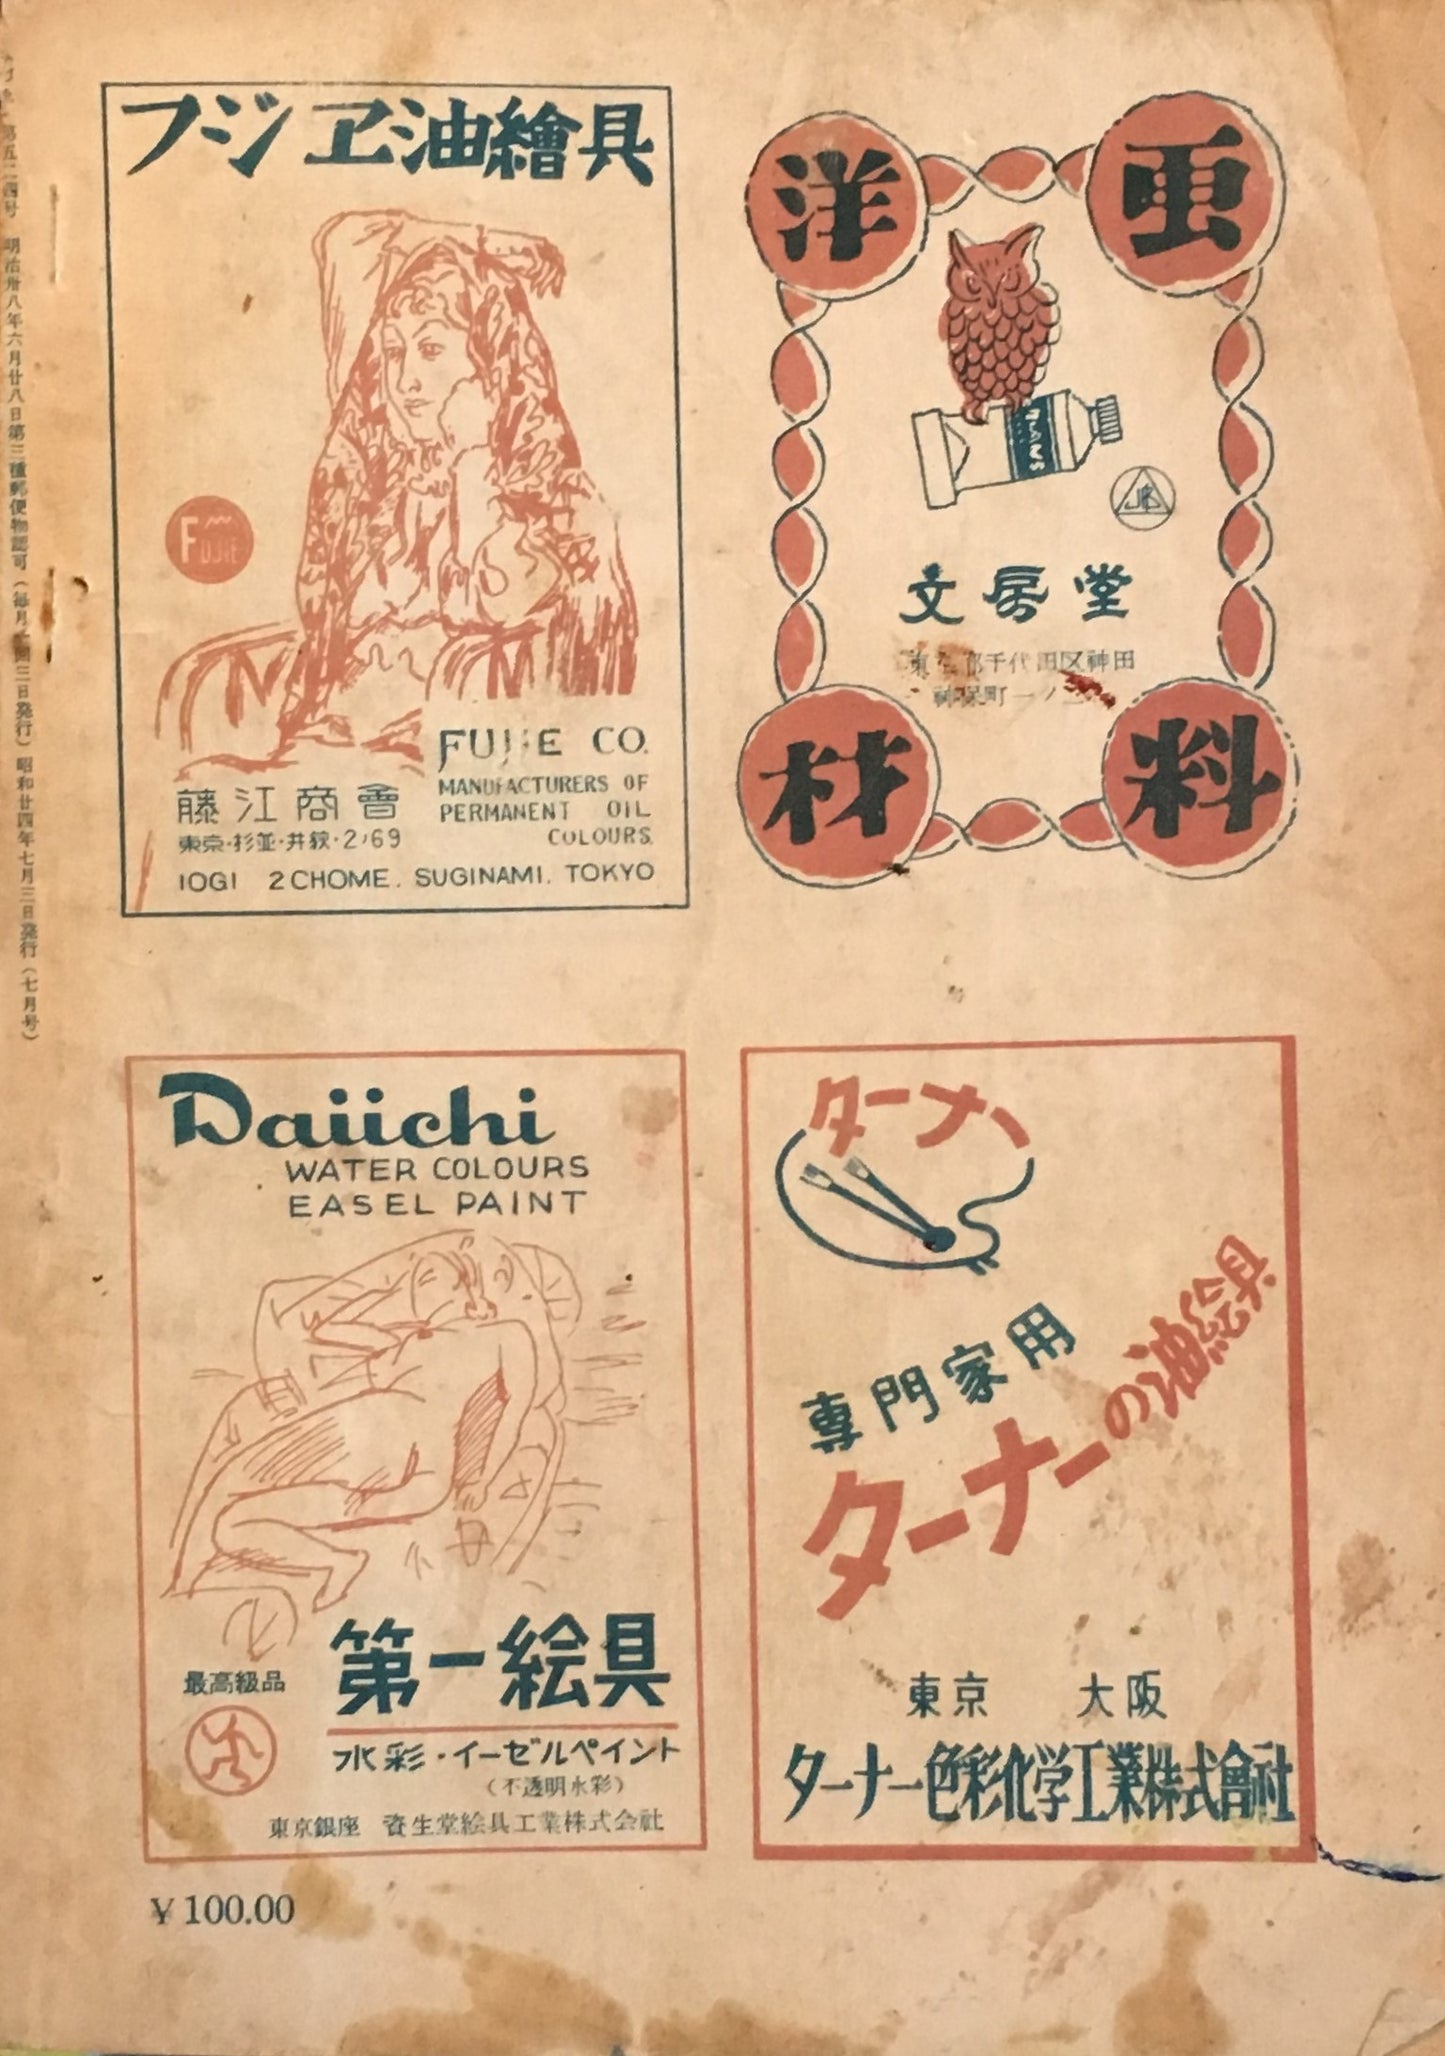 第五二四号 明治卅八年六月廿八日第三種郵便物認可(毎月一回三日発行)昭和廿四年七月三日発行(七月号)
フジヱ油繪具
FUJIE
FUJIE CO.
MANUFACTURERS OF
PERMANENT OIL
COLOURS.
藤江商會
東京・杉並・井荻・2ノ69
IOGI 2CHOME. SUGINAMI. TOKYO
洋画
材料
文房堂
東京都千代田区神田
神保町一ノ
Daiichi
WATER COLOURS
EASEL PAINT
最高級品
第一絵具
水彩・イーゼルペイント
(不透明水彩)
東京銀座 資生堂絵具工業株式会社
ターナー
専門家用
ターナーの油絵具
東京 大阪
ターナー色彩化学工業株式會社
¥100.00